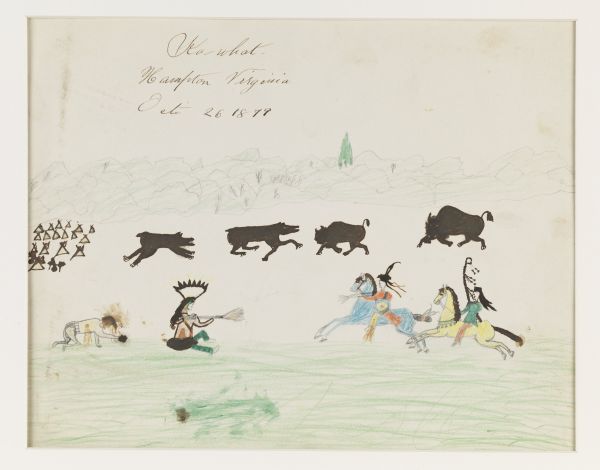 Ko-what-
Hampton Virginia
Octr 26 1879